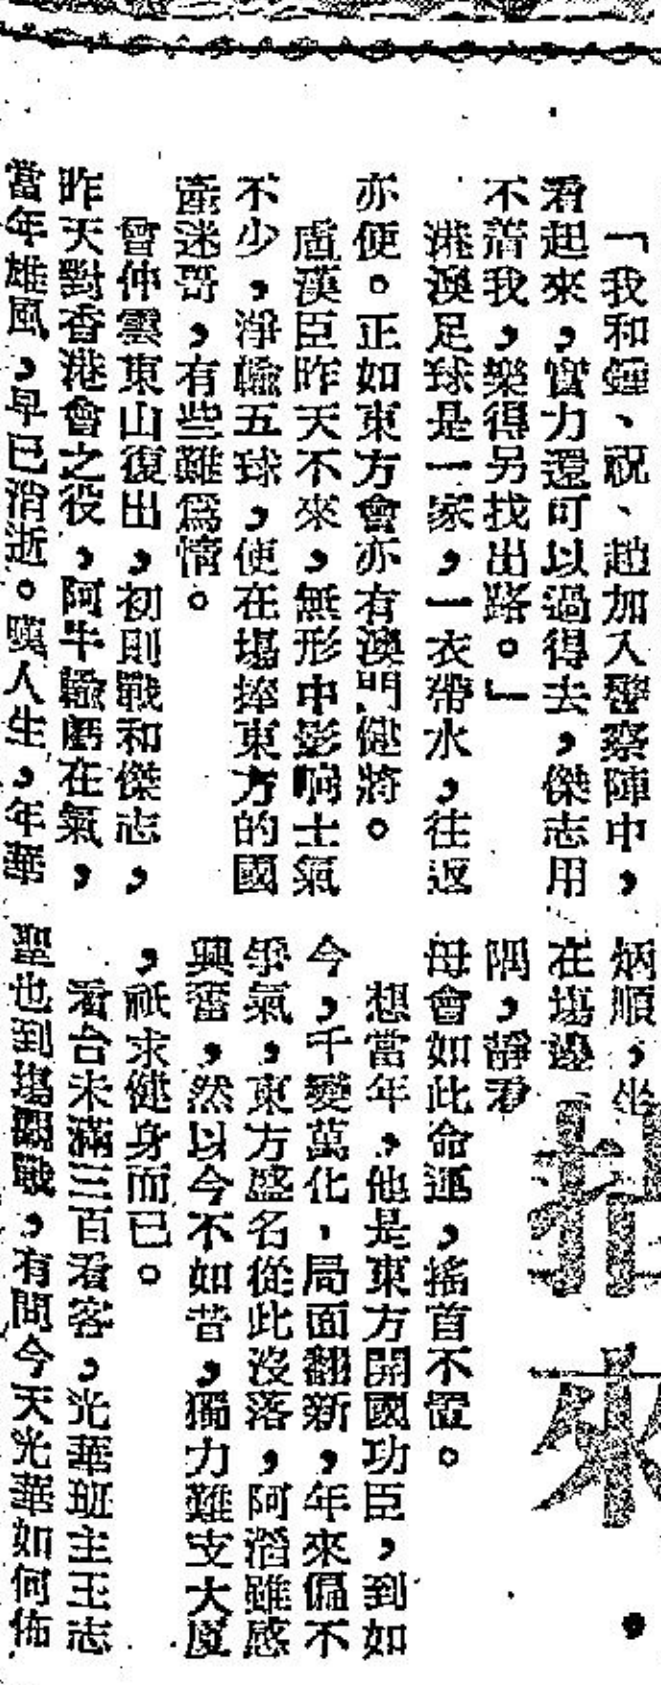 「我和鍾、祝、趙加入警察陣中，
看起來，實力還可以過得去，傑志用
不着我，樂得另找出路。」
港澳足球是一家，一衣帶水，往返
亦便。正如東方會亦有澳門健將。
盧漢臣昨天不來，無形中影响士氣
不少，淨輸五球，使在場捧東方的國
產迷哥，有些難爲情。
曾仲雲東山復出，初則戰和傑志，
昨天對香港會之役，阿牛輸虧在氣，
當年雄風，早已消逝。嘆人生，年華
來
炳順，坐
在場邊一
隅，靜看
母會如此命運，搖首不置。
想當年，他是東方開國功臣，到如
今，千變萬化，局面翻新，年來偏不
爭氣，東方盛名從此沒落，阿滔雖感
興奮，然以今不如昔，獨力難支大廈
，祇求健身而已。
看台未滿三百看客，光華班主王志
聖也到塲觀戰，有問今天光華如何佈